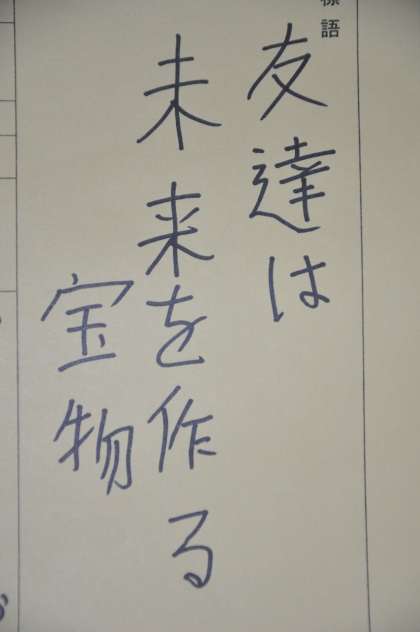 標語
友達は
未来を作る
宝物